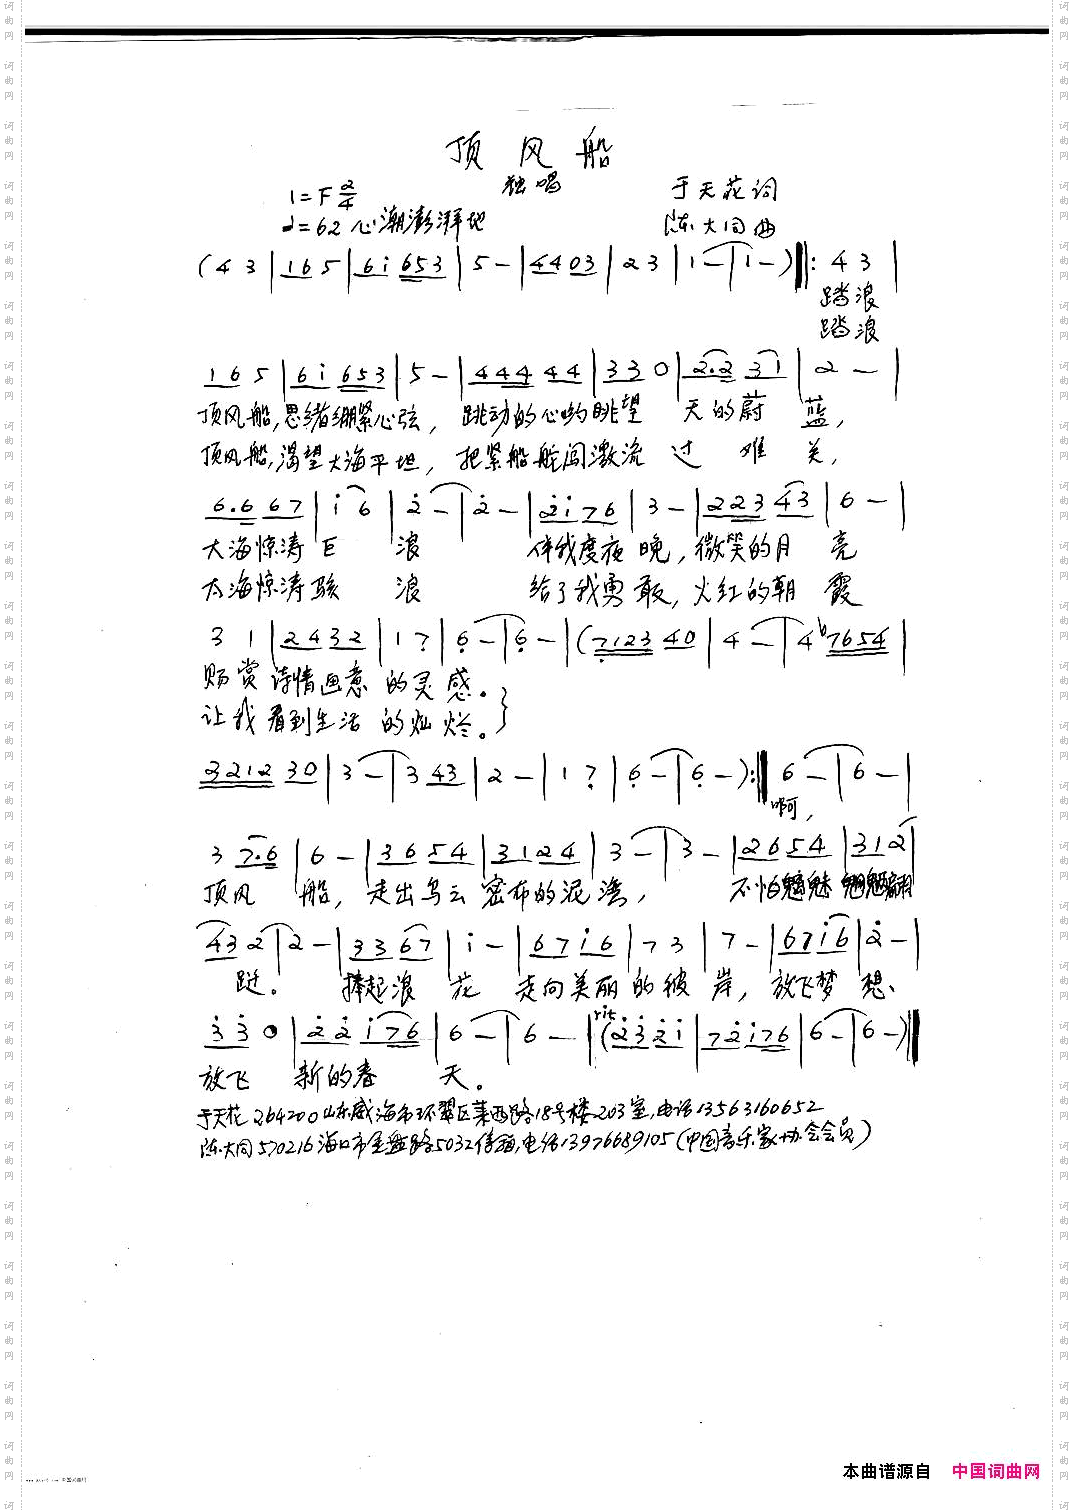 顶风船
独唱
1=F 2/4
♩=62 心潮澎湃地
于天花词
陈大同曲
(4 3 | 1 6 5 | 6 i 6 5 3 | 5 - | 4 4 0 3 | 2 3 | 1 - | 1 - ) ‖: 4 3 |
踏浪
踏浪
1 6 5 | 6 i 6 5 3 | 5 - | 4 4 4 4 4 | 3 3 0 | 2. 2 3 1 | 2 - |
顶风船,思绪绷紧心弦, 跳动的心哟眺望 天的蔚 蓝,
顶风船,渴望大海平坦, 把紧船舵闯激流 过 难 关,
6. 6 6 7 | i 6 | 2 - | 2 - | 2 i 7 6 | 3 - | 2 2 3 4 3 | 6 - |
大海惊涛 巨 浪 伴我度夜 晚, 微笑的月 亮
大海惊涛 骇 浪 给了我勇 敢, 火红的朝 霞
3 1 | 2 4 3 2 | 1 7 | 6 - | 6 - | ( 7 1 2 3 4 0 | 4 - | 4 b7 6 5 4 |
赐赏 诗情画意 的灵 感。
让我 看到生活 的灿 烂。
3 2 1 2 3 0 | 3 - | 3 4 3 | 2 - | 1 7 | 6 - | 6 - ) :‖ 6 - | 6 - |
啊,
3 7. 6 | 6 - | 3 6 5 4 | 3 1 2 4 | 3 - | 3 - | 2 6 5 4 | 3 1 2 |
顶风 船, 走出乌云 密布的泥 湾, 不怕魑魅
4 3 2 | 2 - | 3 3 6 7 | i - | 6 7 i 6 | 7 3 | 7 - | 6 7 i 6 | 2 - |
跹。 捧起浪 花 走向美丽 的彼 岸, 放飞梦 想、
3 3 0 | 2 2 i 7 6 | 6 - | 6 - | rit ( 2 3 2 i | 7 2 i 7 6 | 6 - | 6 - ) ‖
放飞 新的春 天。
于天花 264200 山东威海市环翠区莱西路18号楼203室,电话13563160652
陈大同 570216 海口市金盘路5032信箱,电话13976689105 (中国音乐家协会会员)
本曲谱源自 中国词曲网